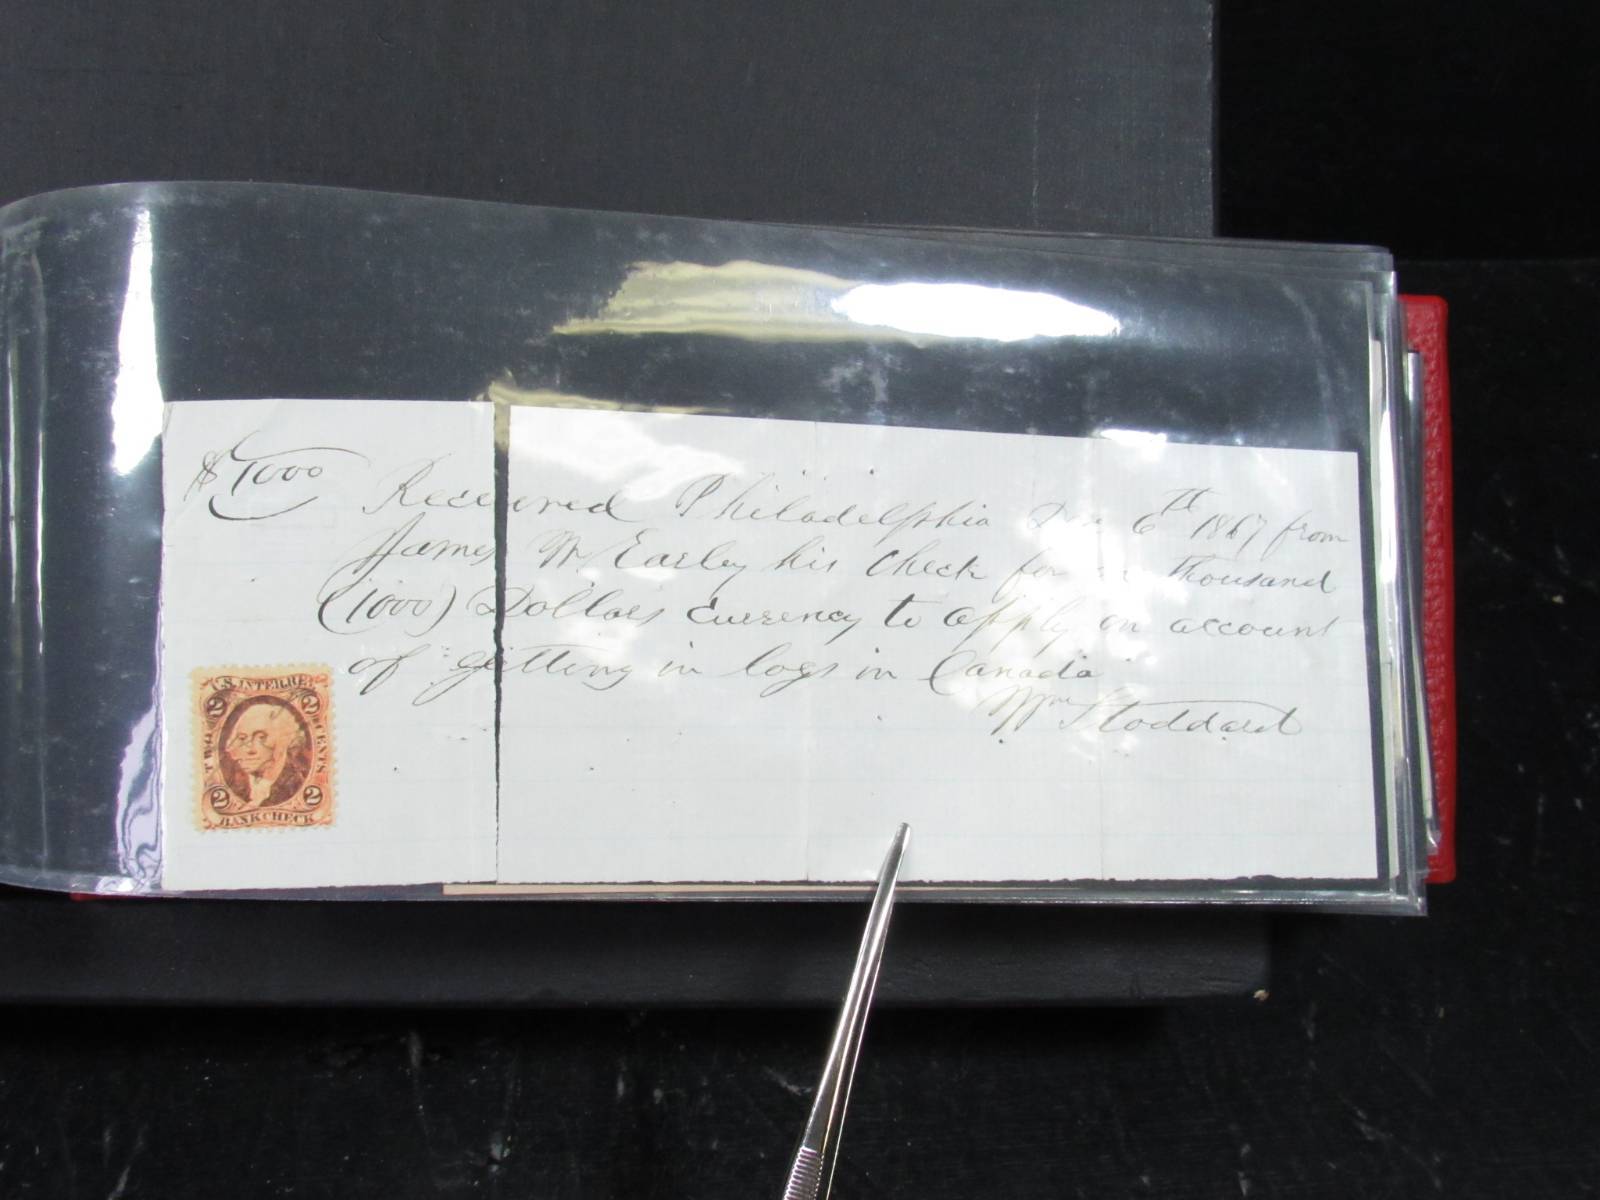 $1000
Received Philadelphia Dec 6th 1867 from
James W Earley his check for one thousand
(1000) Dollars Currency to apply on account
of getting in logs in Canada
Wm Stoddard
U.S. INTER. RE
TWO CENTS
2 2
2 2
BANK CHECK